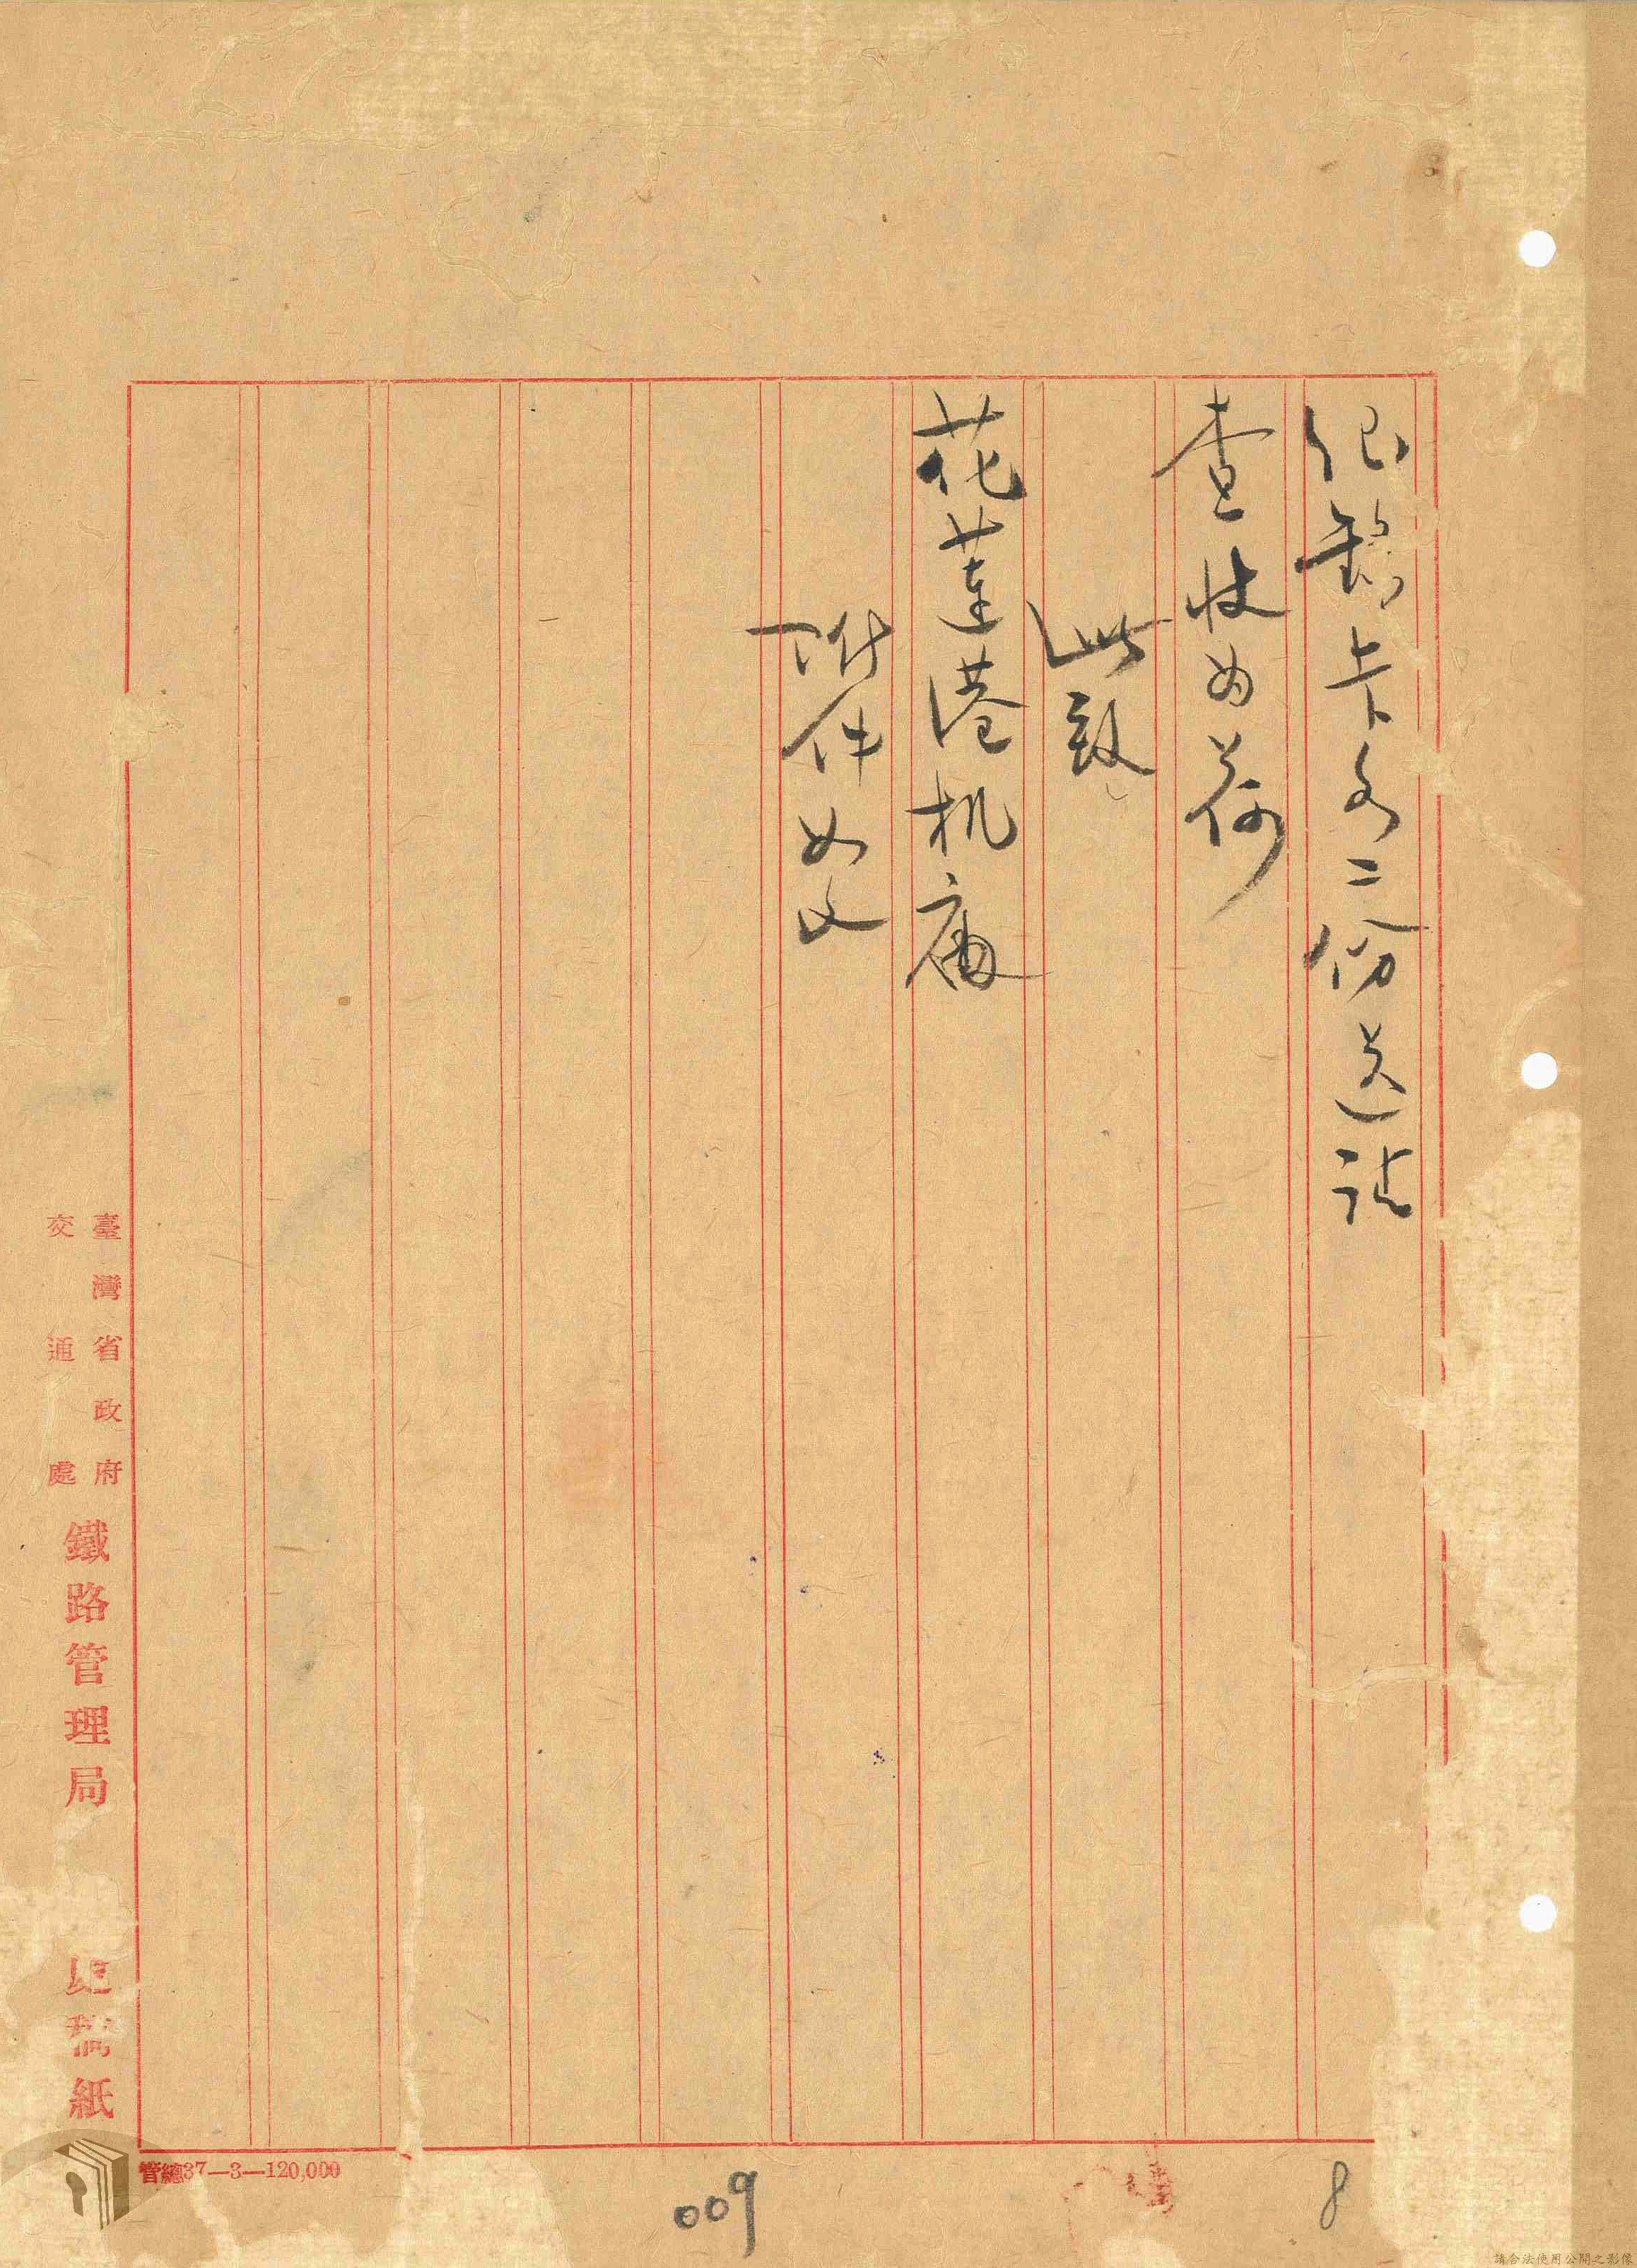 印鑑卡各二份送請
查收为荷
此致
花蓮港机廠
附件如文
臺灣省政府
交通處
鐵路管理局
紙
管總37—3—120,000
009
8
請合法使用公開之影像